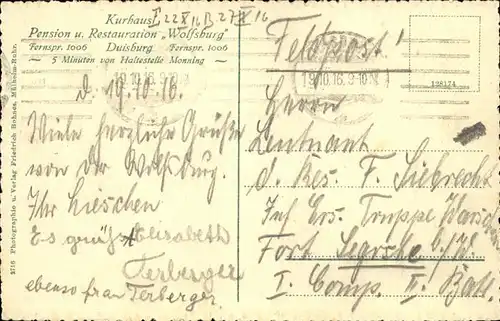 Kurhaus
Pension u. Restauration „Wolfsburg"
Fernspr. 1006 Duisburg Fernspr. 1006
5 Minuten von Haltestelle Monning
d. 19.10.16.
Viele herzliche Grüße
von der Wolfsburg.
Ihr Lieschen
Es grüßt Elisabeth
Terberger
ebenso frau Terberger.
2716 Photographie u. Verlag Friedrich Rohaes, Mülheim-Ruhr.
19.10.16. 9-10
19.10.16. 9-10
Feldpost!
128174
Herrn
Leutnant
d. Res. F. Siebrecht
Inf. Ers. Truppe Warschau
Fort
I. Comp. II. Batl.